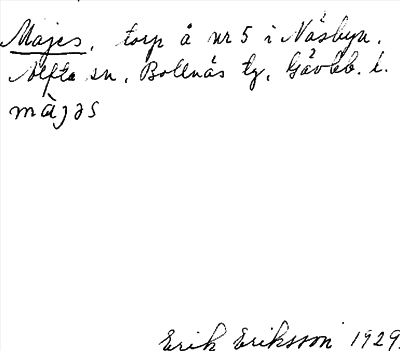 Majes, torp å nr 5 i Näsbyn.
Alfta sn, Bollnäs tg, Gävleb. l.
màjəs
Erik Eriksson 1929.